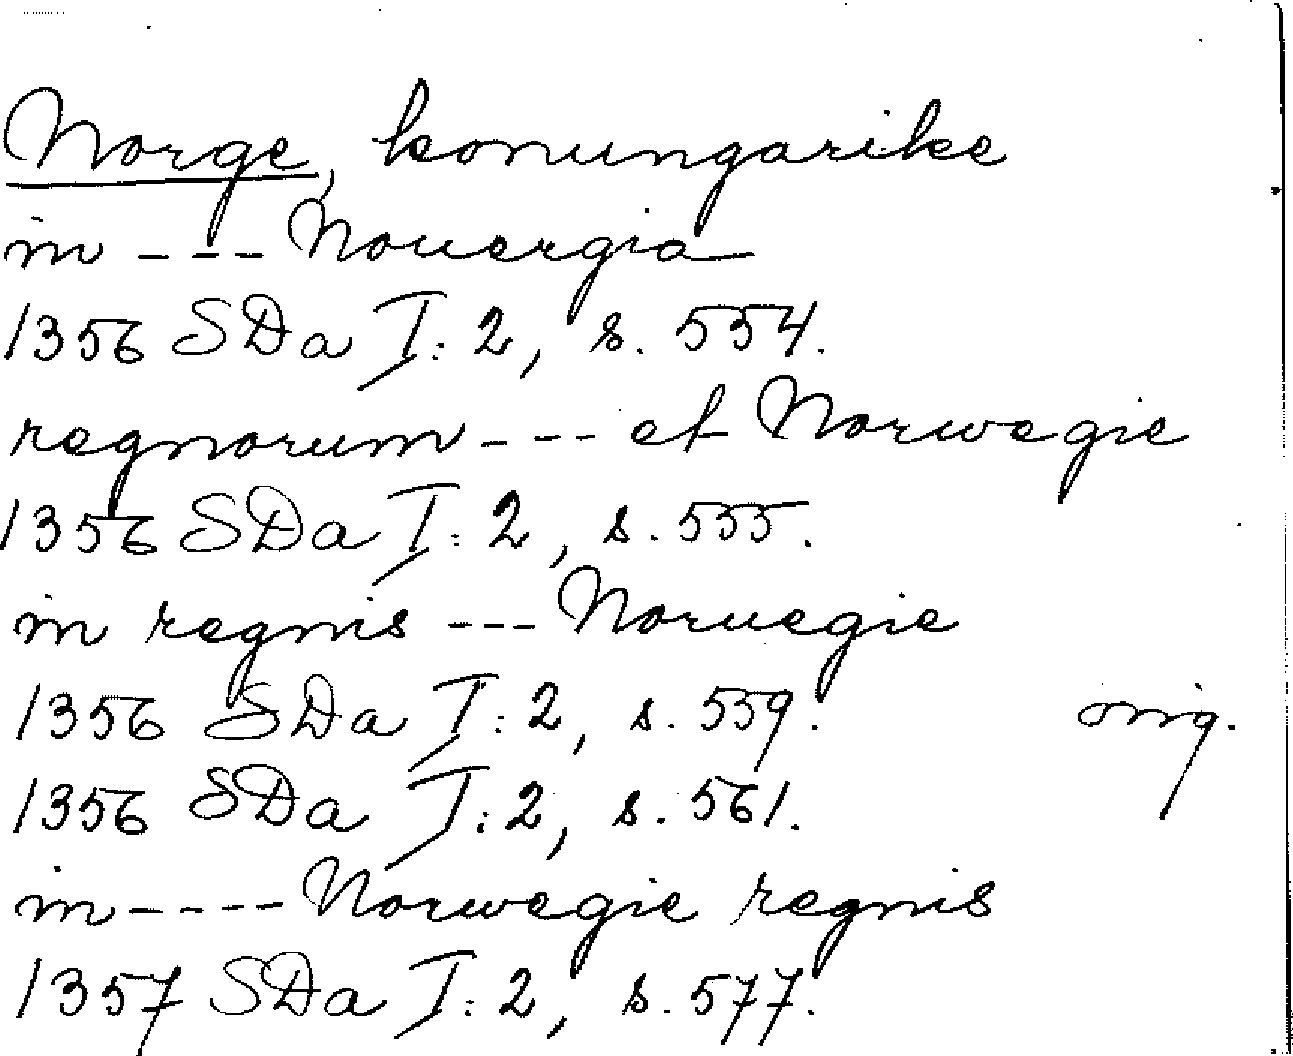 Norge, konungarike
in --- Nouergia
1356 SDa I:2, s. 554.
regnorum --- et Norwegie
1356 SDa I:2, s. 555.
in regnis --- Noruegie
1356 SDa I:2, s. 559. orig.
1356 SDa I:2, s. 561.
in ---- Norwegie regnis
1357 SDa I:2, s. 577.